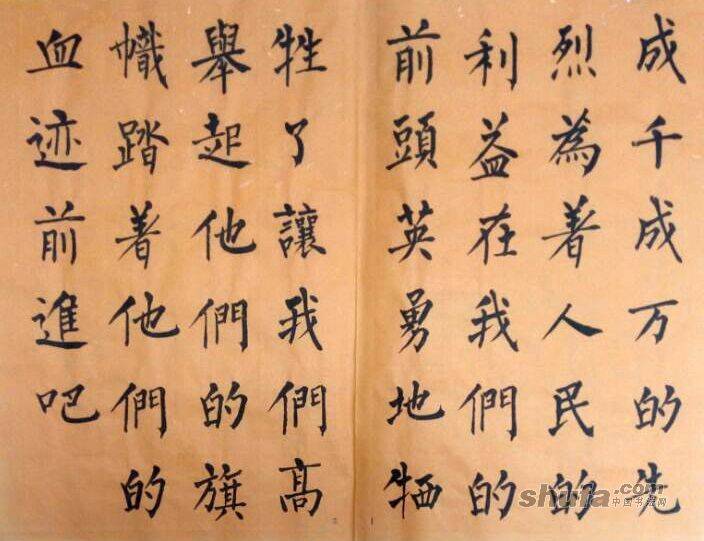 成千成万的先
烈為著人民的
利益在我們的
前頭英勇地牺
牲了讓我們高
舉起他們的旗
幟踏着他們的
血迹前進吧
shufa.com
中国书法网